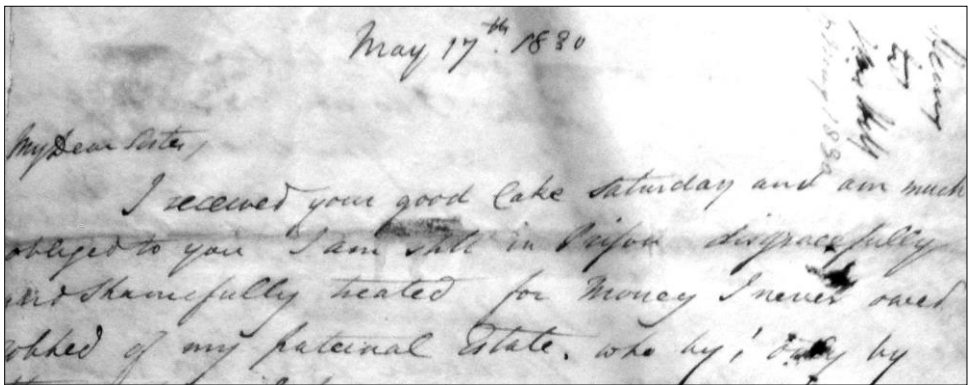 May 17th. 1830
My Dear Sister,
I received your good Cake Saturday and am much
obliged to you I am still in Prison disgracefully
and Shamefully treated for Money I never owed
robbed of my paternal Estate. who by! by
Henry
to
May 1830